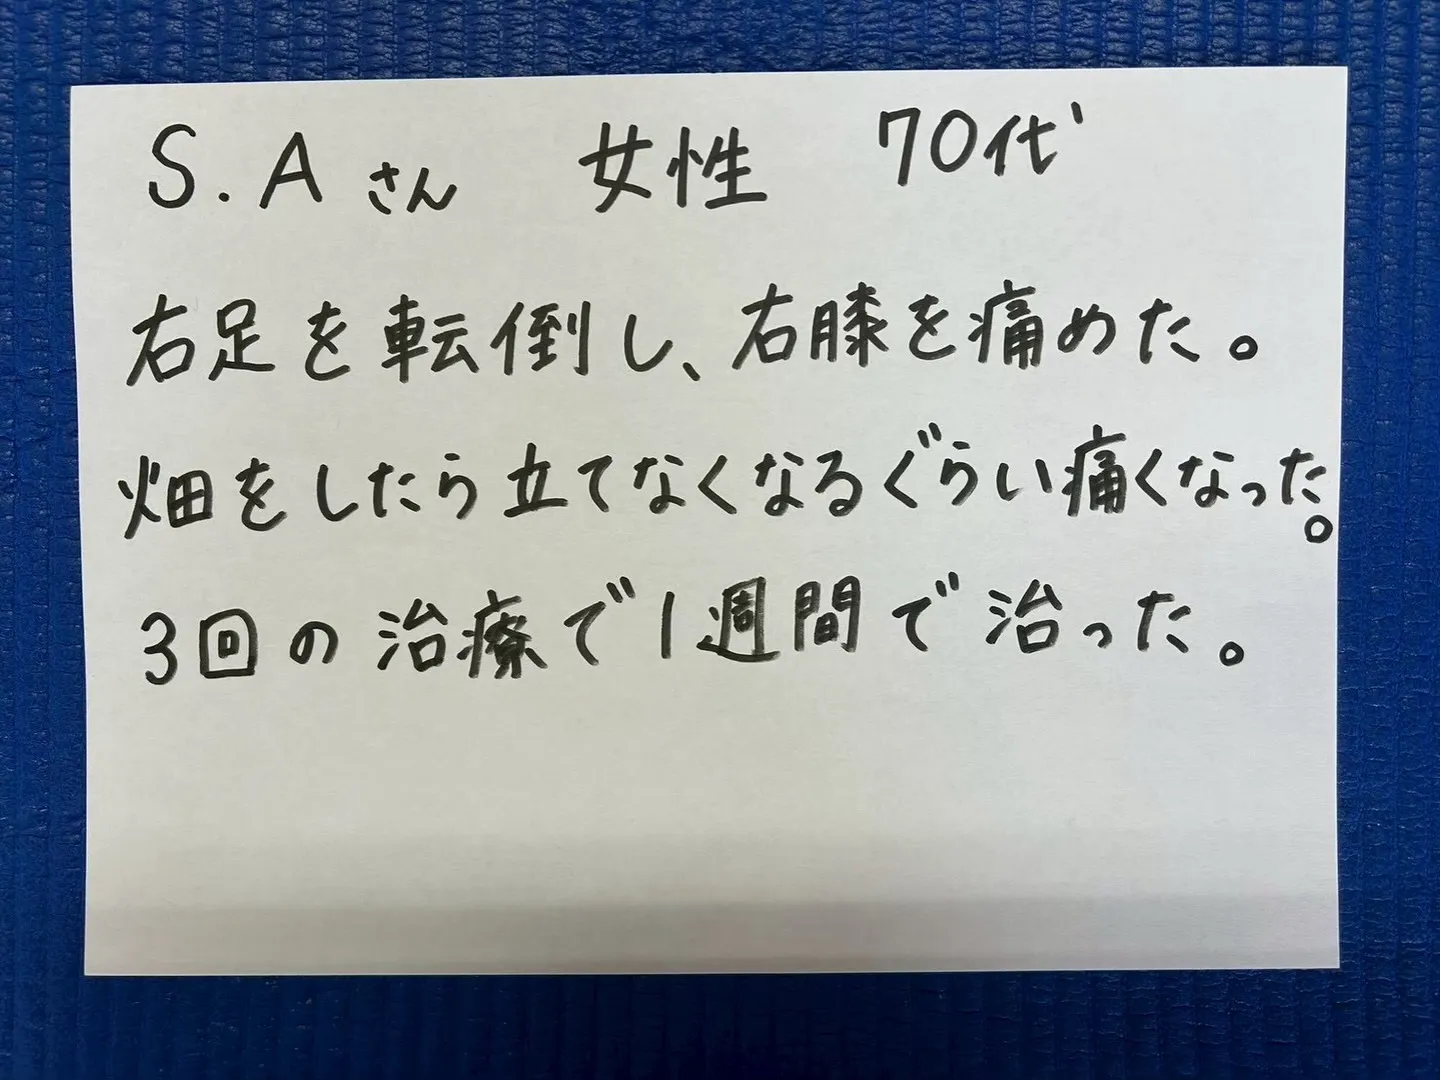 S.Aさん 女性 70代
右足を転倒し、右膝を痛めた。
畑をしたら立てなくなるぐらい痛くなった。
3回の治療で1週間で治った。